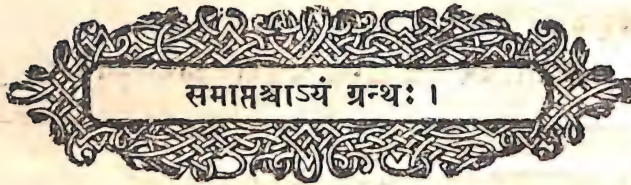 समाप्तश्चाऽयं ग्रन्थः ।